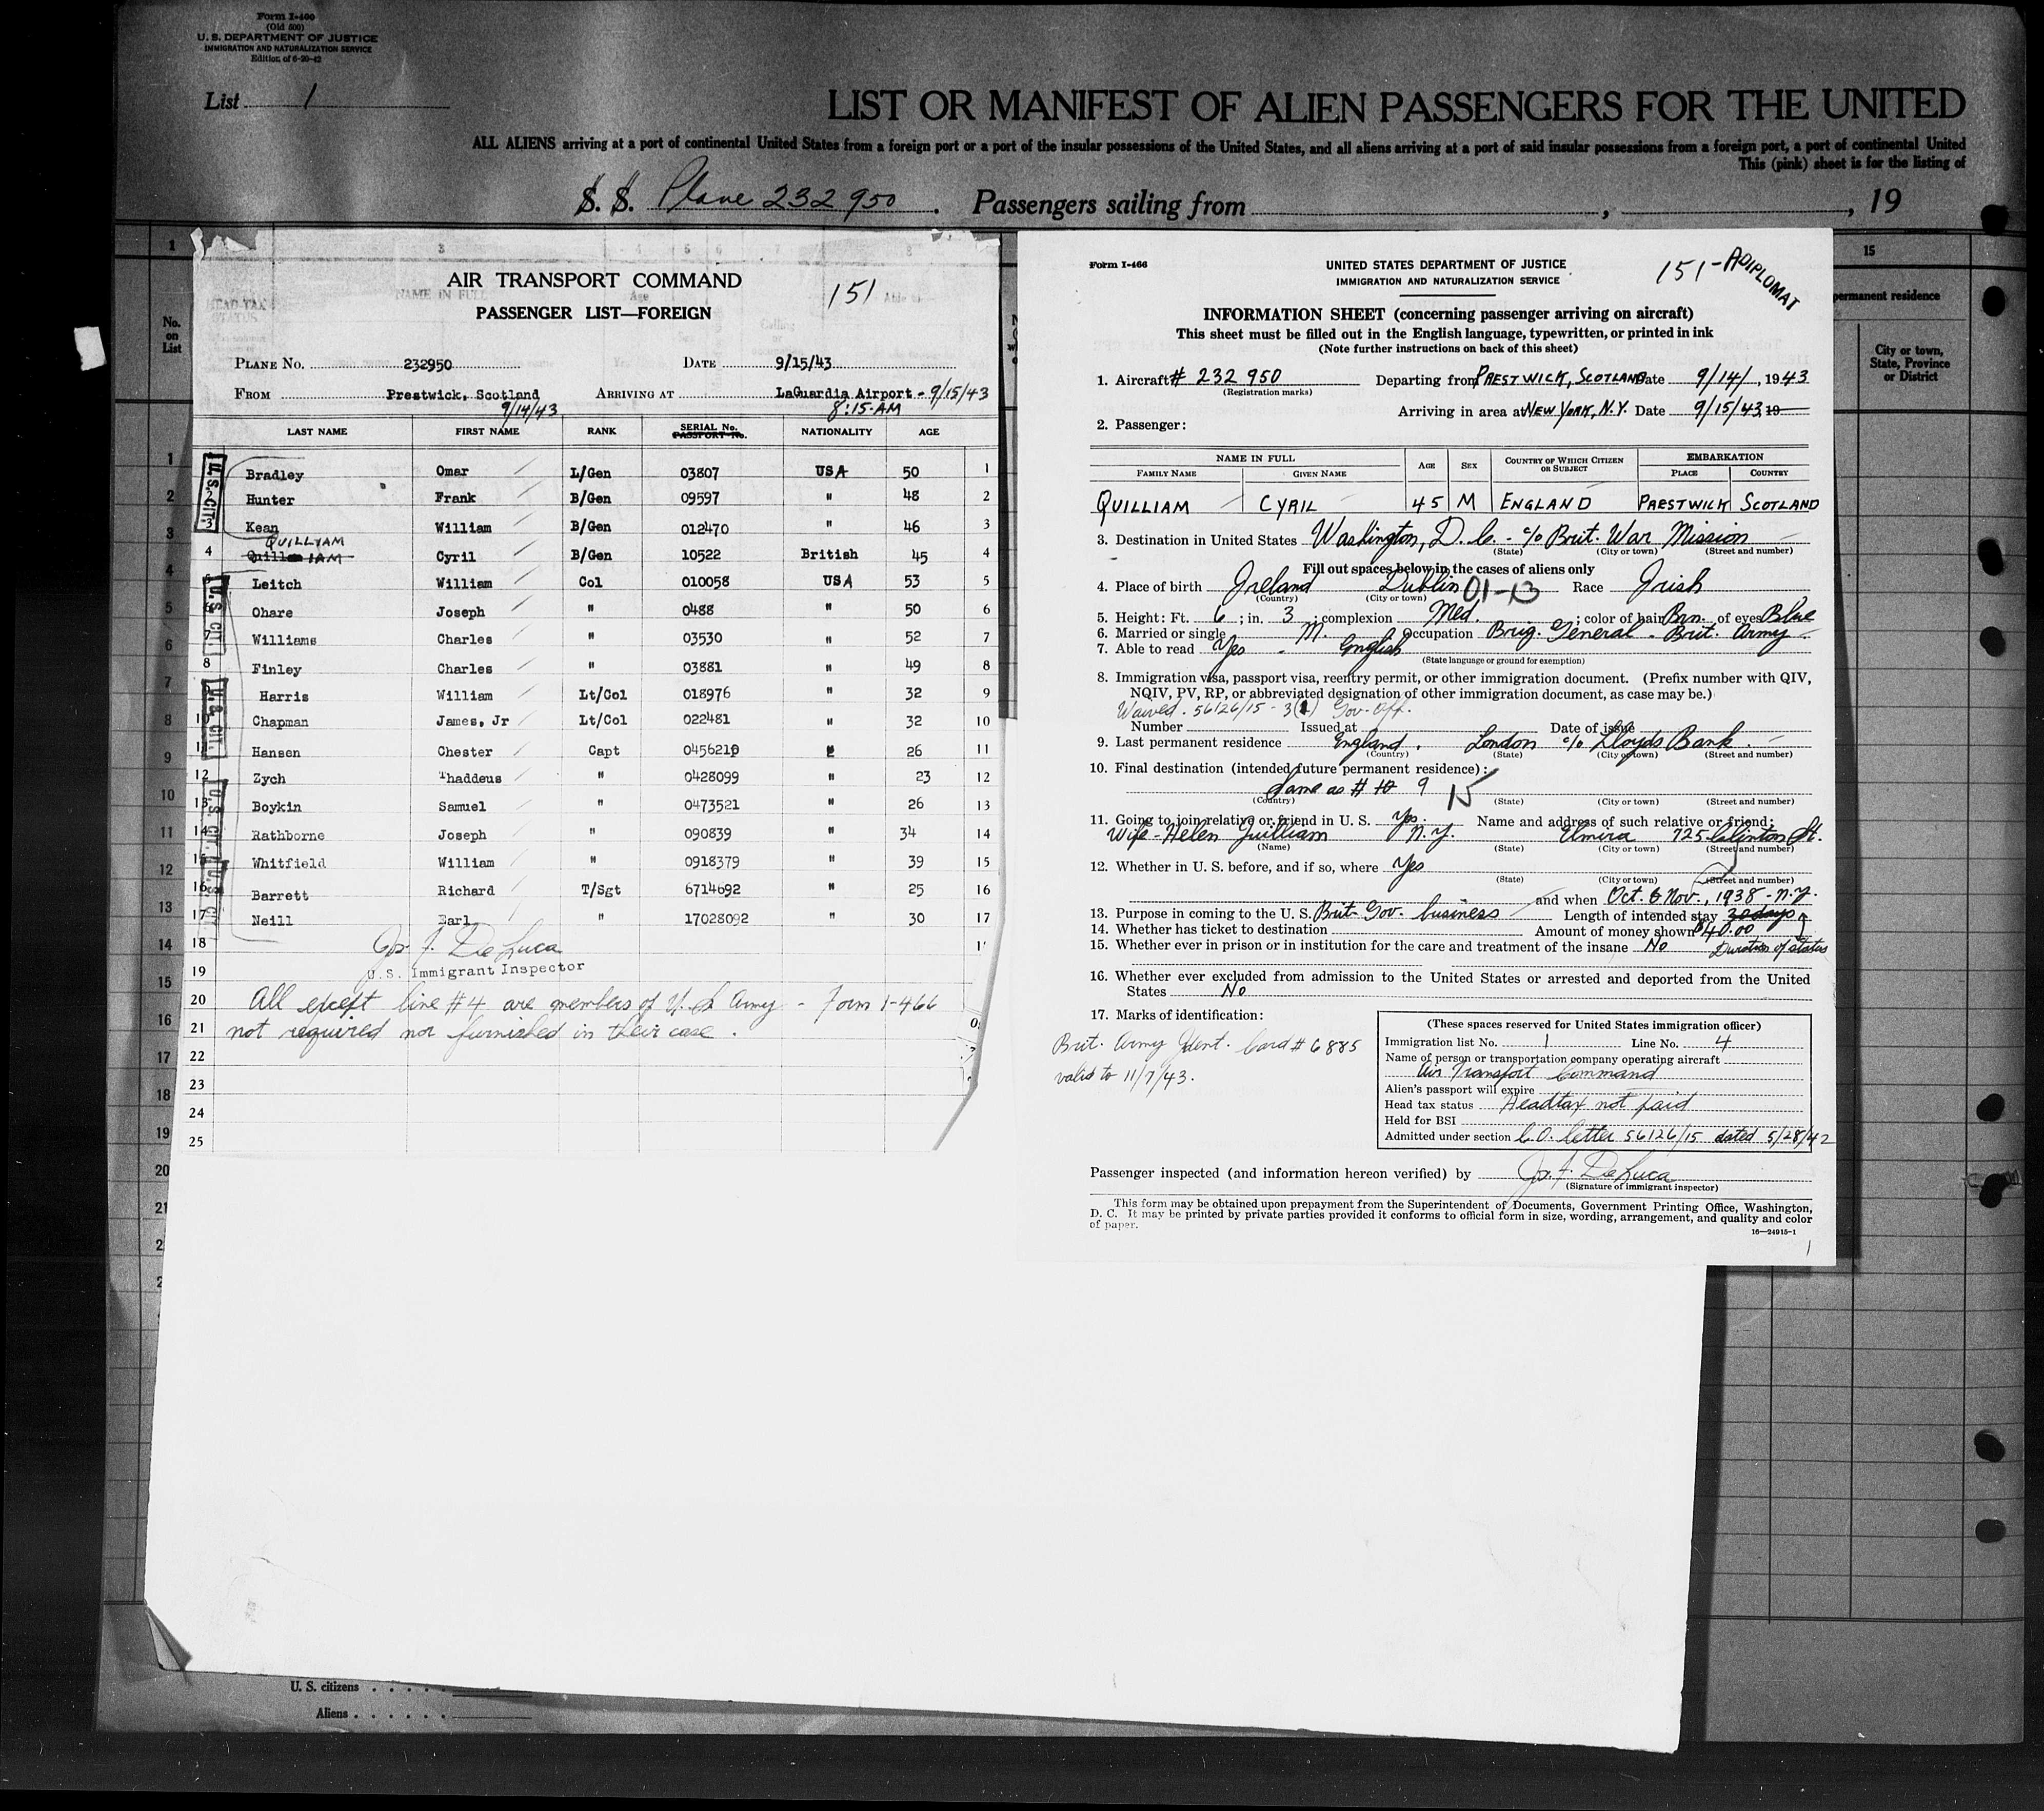 Form I-400
(Old 500)
U. S. DEPARTMENT OF JUSTICE
IMMIGRATION AND NATURALIZATION SERVICE
Edition of 6-20-42
List 1
LIST OR MANIFEST OF ALIEN PASSENGERS FOR THE UNITED
ALL ALIENS arriving at a port of continental United States from a foreign port or a port of the insular possessions of the United States, and all aliens arriving at a port of said insular possessions from a foreign port, a port of continental United
This (pink) sheet is for the listing of
S. S. Plane 232950. Passengers sailing from , , 19
1 3 4 5 6 7 8
No. on List
AIR TRANSPORT COMMAND
PASSENGER LIST—FOREIGN
151
PLANE NO. 232950 DATE 9/15/43
FROM Prestwick, Scotland ARRIVING AT LaGuardia Airport - 9/15/43
9/14/43 8:15-AM
LAST NAME FIRST NAME RANK SERIAL No. PASSPORT No. NATIONALITY AGE
Bradley Omar L/Gen 03807 USA 50 1
Hunter Frank B/Gen 09597 " 48 2
Kean William B/Gen 012470 " 46 3
QUILLIAM
4 Cyril B/Gen 10522 British 45 4
Leitch William Col 010058 USA 53 5
Ohare Joseph " 0488 " 50 6
7 Williams Charles " 03530 " 52 7
8 Finley Charles " 03881 " 49 8
Harris William Lt/Col 018976 " 32 9
10 Chapman James, Jr Lt/Col 022481 " 32 10
11 Hansen Chester Capt 0456210 " 26 11
12 Zych Thaddeus " 0428099 " 23 12
13 Boykin Samuel " 0473521 " 26 13
14 Rathborne Joseph " 090839 " 34 14
15 Whitfield William " 0918379 " 39 15
16 Barrett Richard T/Sgt 6714692 " 25 16
17 Neill Earl " 17028092 " 30 17
U.S. CIT.
U.S. CIT.
U.S. CIT.
U.S. CIT.
18 Jos. F. DeLuca
19 U.S. Immigrant Inspector
20 All except line #4 are members of U.S. Army - Form I-466
21 not required nor furnished in their case.
22
23
24
25
1
2
3
4
5
6
7
8
9
10
11
12
13
14
15
16
17
18
19
20
21
Form I-466
UNITED STATES DEPARTMENT OF JUSTICE
IMMIGRATION AND NATURALIZATION SERVICE
151-A DIPLOMAT
INFORMATION SHEET (concerning passenger arriving on aircraft)
This sheet must be filled out in the English language, typewritten, or printed in ink
(Note further instructions on back of this sheet)
1. Aircraft # 232950 Departing from PRESTWICK, SCOTLAND Date 9/14/, 1943
(Registration marks)
Arriving in area at NEW YORK, N.Y. Date 9/15/43, 19
2. Passenger:
NAME IN FULL AGE SEX COUNTRY OF WHICH CITIZEN OR SUBJECT EMBARKATION
FAMILY NAME GIVEN NAME PLACE COUNTRY
QUILLIAM CYRIL 45 M ENGLAND PRESTWICK SCOTLAND
3. Destination in United States Washington, D.C. - c/o Brit. War Mission
(State) (City or town) (Street and number)
Fill out spaces below in the cases of aliens only
4. Place of birth Ireland Dublin 01-13 Race Irish
(Country) (City or town)
5. Height: Ft. 6; in. 3; complexion Med.; color of hair Brn. of eyes Blue
6. Married or single M. Occupation Brig. General - Brit. Army
7. Able to read Yes - English
(State language or ground for exemption)
8. Immigration visa, passport visa, reentry permit, or other immigration document. (Prefix number with QIV,
NQIV, PV, RP, or abbreviated designation of other immigration document, as case may be.)
Waived. 56126/15 - 3(1) Gov. Off.
Number Issued at Date of issue
9. Last permanent residence England. London c/o Lloyds Bank.
(Country) (State) (City or town) (Street and number)
10. Final destination (intended future permanent residence):
Same as # 10 9 15
(Country) (State) (City or town) (Street and number)
11. Going to join relative or friend in U. S. Yes. Name and address of such relative or friend:
Wife - Helen Quilliam N.Y. Elmira 725 Clinton St.
(Name) (State) (City or town) (Street and number)
12. Whether in U. S. before, and if so, where Yes
(State) (City or town) (Street and number)
and when Oct. & Nov., 1938 - N.Y.
13. Purpose in coming to the U. S. Brit. Gov. business Length of intended stay 30 days
14. Whether has ticket to destination Amount of money shown $40.00
15. Whether ever in prison or in institution for the care and treatment of the insane No Duration of status
16. Whether ever excluded from admission to the United States or arrested and deported from the United
States No
17. Marks of identification:
Brit. Army Ident. Card # 6885
valid to 11/7/43.
(These spaces reserved for United States immigration officer)
Immigration list No. 1 Line No. 4
Name of person or transportation company operating aircraft
Air Transport Command
Alien's passport will expire
Head tax status Headtax not paid
Held for BSI
Admitted under section C.O. letter 56126/15 dated 5/28/42
Passenger inspected (and information hereon verified) by Jos. F. DeLuca
(Signature of immigrant inspector)
This form may be obtained upon prepayment from the Superintendent of Documents, Government Printing Office, Washington,
D. C. It may be printed by private parties provided it conforms to official form in size, wording, arrangement, and quality and color
of paper.
16—24915-1
1
15
permanent residence
City or town, State, Province or District
U. S. citizens
Aliens